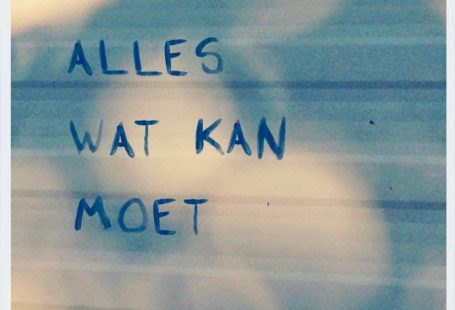 ALLES
WAT KAN
MOET